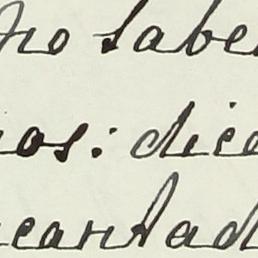 no sabe
os: dice
cantad